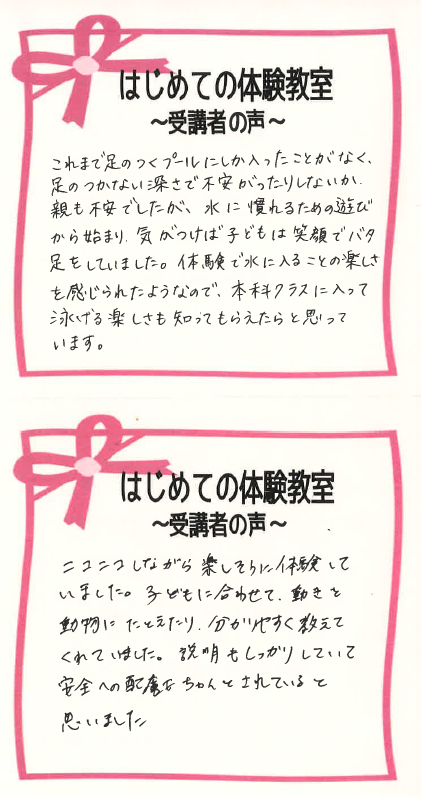 はじめての体験教室
～受講者の声～
これまで足のつくプールにしか入ったことがなく、
足のつかない深さで不安がったりしないか、
親も不安でしたが、水に慣れるための遊び
から始まり、気がつけば子どもは笑顔でバタ
足をしていました。体験で水に入ることの楽しさ
を感じられたようなので、本科クラスに入って
泳げる楽しさも知ってもらえたらと思って
います。
はじめての体験教室
～受講者の声～
ニコニコしながら楽しそうに体験して
いました。子どもに合わせて、動きを
動物にたとえたり、分かりやすく教えて
くれていました。説明もしっかりしていて
安全への配慮もちゃんとされていると
思いました